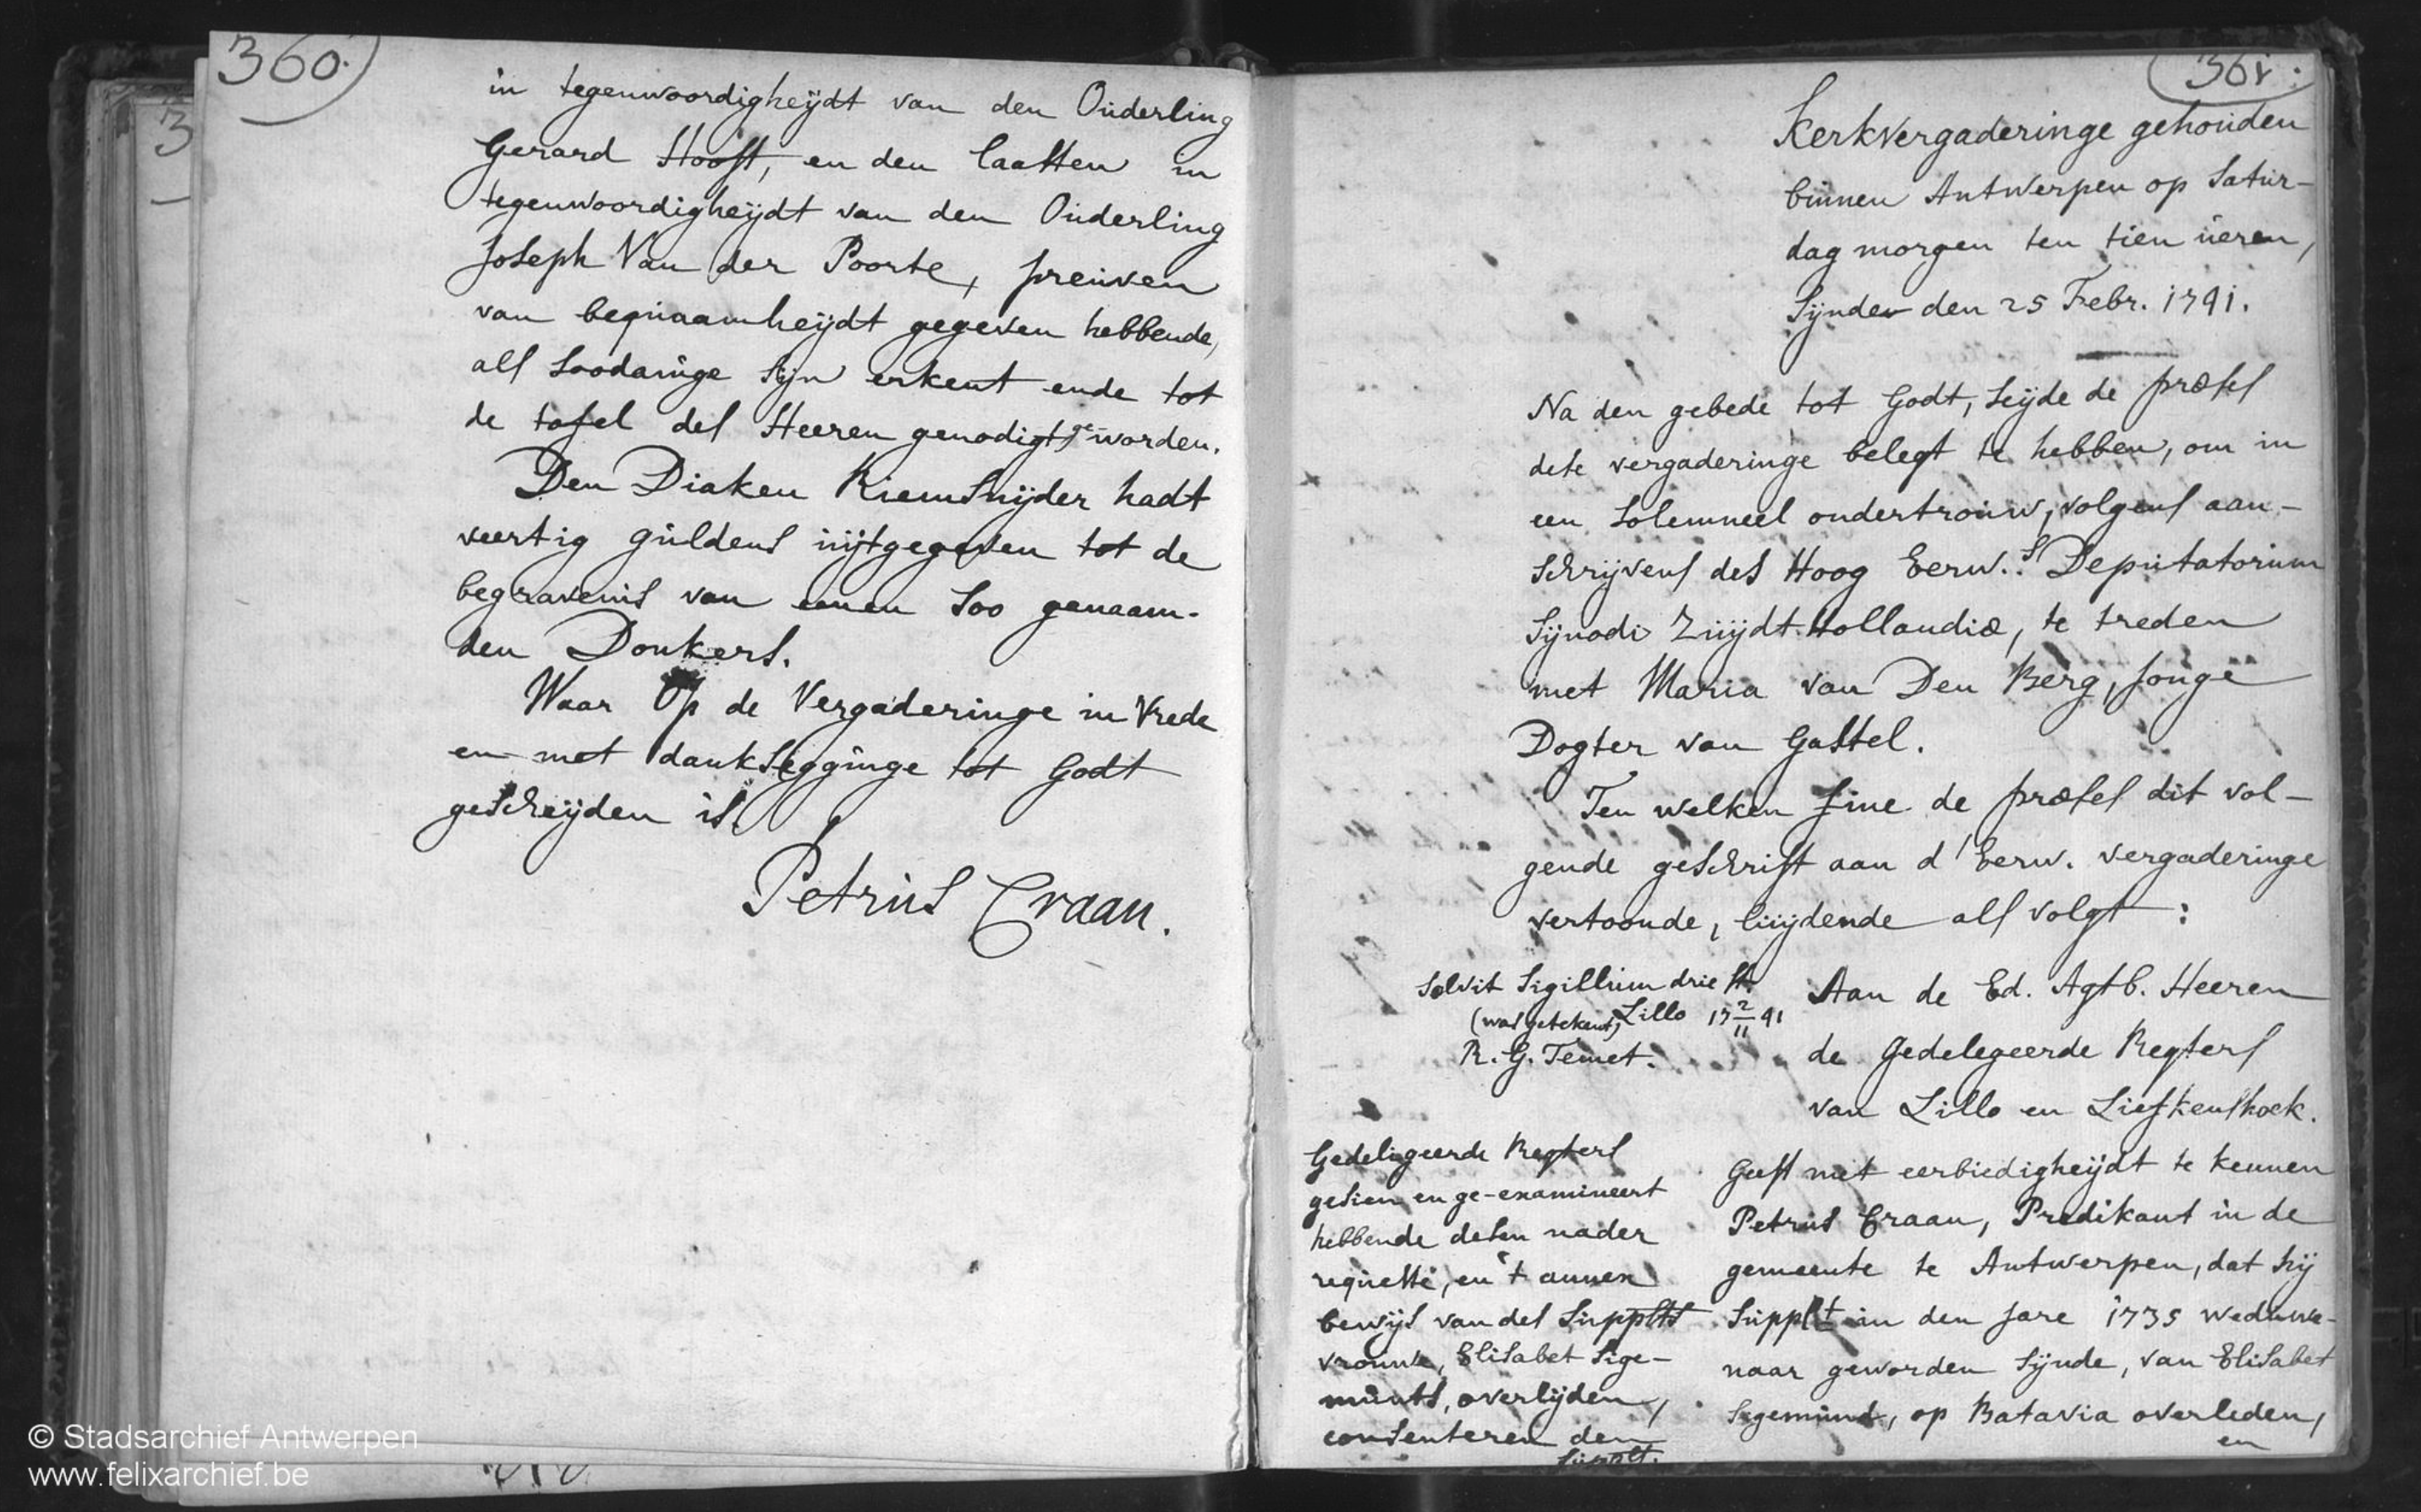 360.
in tegenwoordigheÿdt van den Ouderling
Gerard Hooft, en den laatsten in
tegenwoordigheÿdt van den Ouderling
Joseph Van der Poorte, preuven
van bequaamheÿdt gegeven hebbende,
als soodanige sijn erkent ende tot
de tafel des Heeren genodigt geworden.
Den Diaken Riemsnijder hadt
veertig guldens uijtgegeven tot de
begravenis van eenen soo genaam-
den Donkers.
Waar Op de Vergaderinge in Vrede
en met dankSegginge tot Godt
gescheijden is.
Petrus Craan.
361.
Kerkvergaderinge gehouden
binnen Antwerpen op Satur-
dag morgen ten tien ueren,
Sijnde den 25 Febr. 1741.
Na den gebede tot Godt, seijde de præses
dese vergaderinge belegt te hebben, om in
een solemneel ondertrouw, volgens aan-
schrijvens des Hoog Eerw.s Deputatorum
Sijnodi Zuijdt-Hollandiæ, te treden
met Maria van Den Berg, Jonge
Dogter van Gastel.
Ten welken fine de præses dit vol-
gende geschrift aan d' Eerw. vergaderinge
vertoonde, luijdende als volgt:
Solvit Sigillum drie st.
(was getekent) Lillo 17 2/11 41
R. G. Temet.
Aan de Ed. Agtb. Heeren
de Gedelegeerde Regters
van Lillo en Liefkenshoek.
Gedeligeerde Regters
gesien en ge-examineert
hebbende desen nader
requeste, en 't annex
bewijs van des Supplts
vrouwe, Elisabet Sige-
munts, overlijden,
consenteren den
Supplt.
Geeft met eerbiedigheijdt te kennen
Petrus Craan, Predikant in de
gemeente te Antwerpen, dat hij
Supplt in den jare 1735 weduwe-
naar geworden sijnde, van Elisabet
Sigemund, op Batavia overleden,
en
© Stadsarchief Antwerpen
www.felixarchief.be